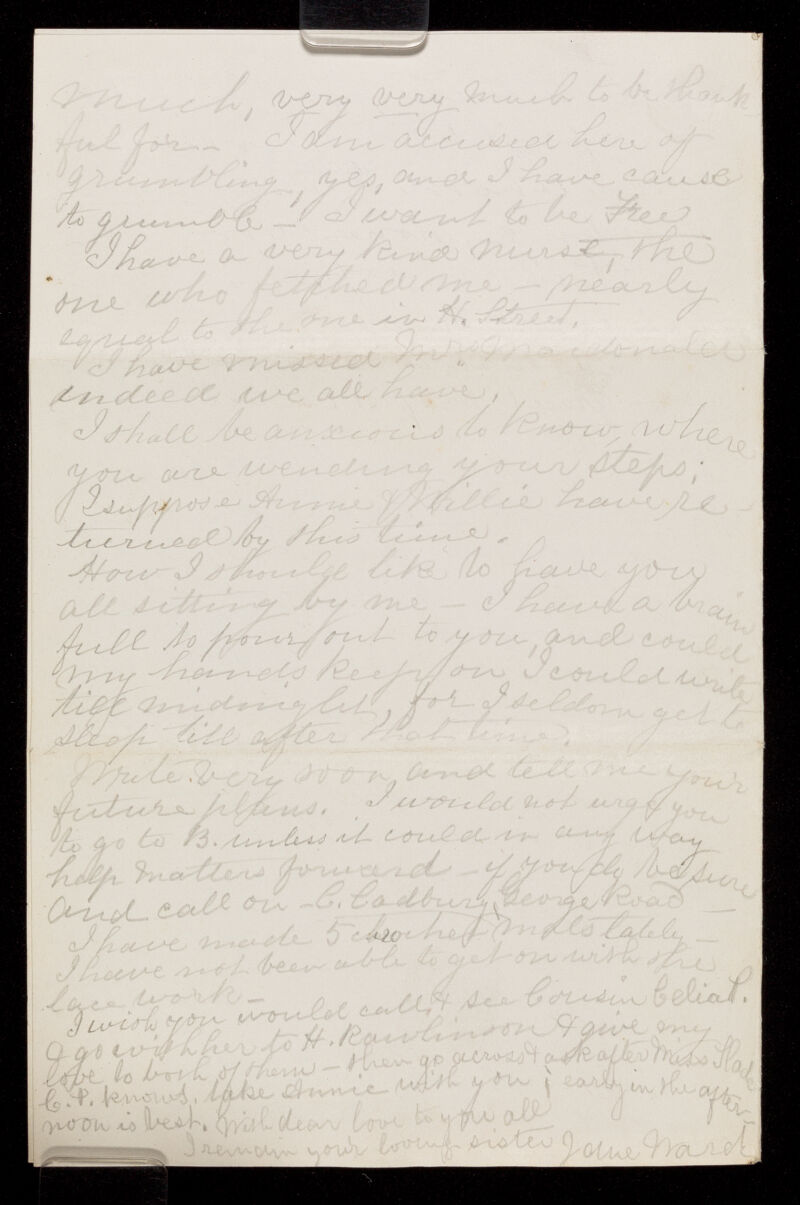 much, very very much to be thank-
ful for - I am accused here of
grumbling, yes, and I have cause
to grumble - I want to be Free
I have a very kind nurse, the
one who fetched me - nearly
equal to the one in H. Street.
I have missed Mrs Macdonald
indeed we all have.
I shall be anxious to know, where
you are wending your steps;
I suppose Annie & Willie have re-
turned by this time.
How I should like to have you
all sitting by me - I have a brain
full to pour out to you, and could
my hands keep on I could write
till midnight, for I seldom get to
sleep till after that time.
Write very soon, and tell me your
future plans. I would not urge you
to go to B. unless it could in any way
help matters forward - if you do, be sure
and call on - C. Cadbury, George Road -
I have made 5 crochet mats lately -
I have not been able to get on with the
lace work -
I wish you would call, & see Cousin Celia P.
& go with her to H. Rawlinson & give my
love to both of them - then go across & ask after Miss Slade
C. P. knows, take Annie with you; early in the after-
noon is best. With dear love to you all
I remain your loving sister Jane Ward